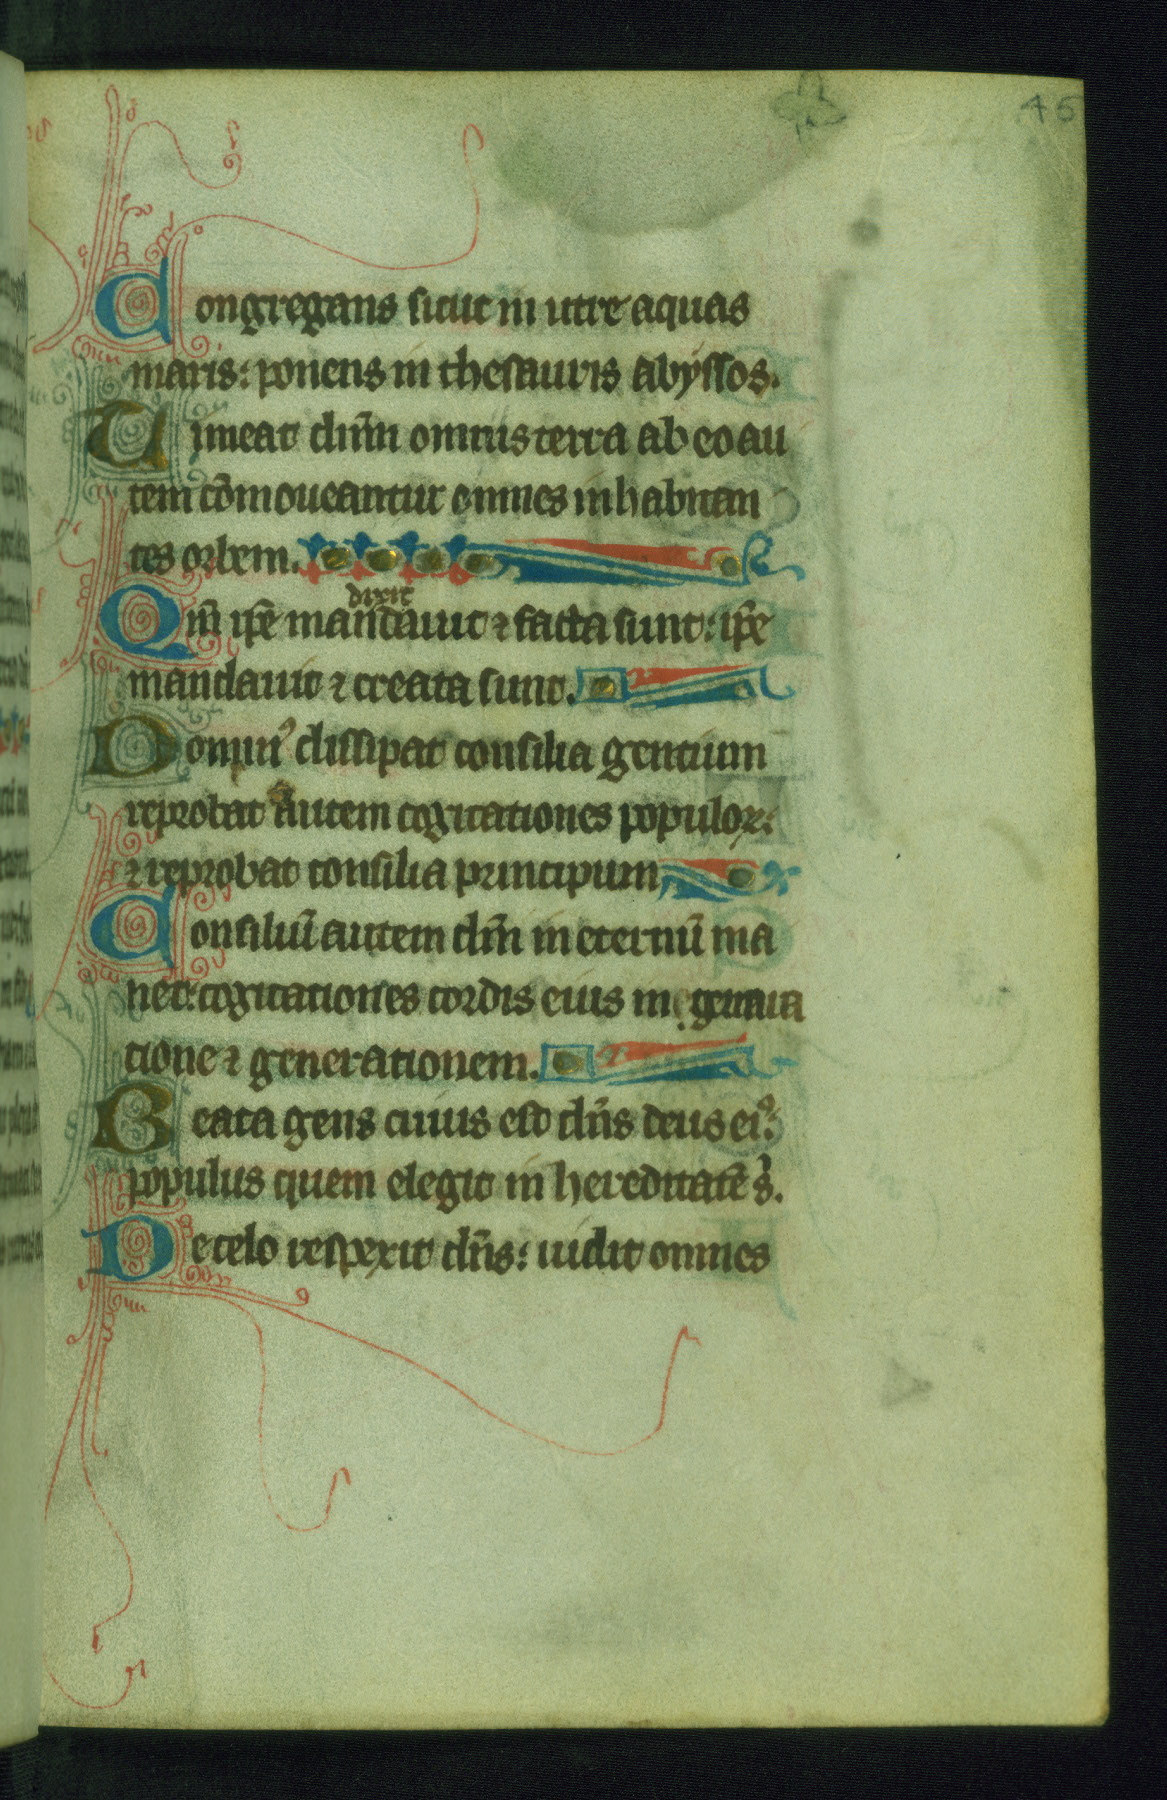 45
Congregans sicut in utre aquas
maris: ponens in thesauris abyssos.
Timeat dn̄m omnis terra ab eo au
tem cōmoueantur omnes inhabitan
tes orbem.
dixit
Qm̄ ip̄e mandauit ⁊ facta sunt: ip̄e
mandauit ⁊ creata sunt.
Dominꝰ dissipat consilia gentium
reprobat autem cogitationes populoꝝ:
⁊ reprobat consilia principum
Consiliū autem dn̄i in eternū ma
net: cogitationes cordis eius in genera
tione ⁊ generationem.
Beata gens cuius est dn̄s deus eiꝰ:
populus quem elegit in hereditatē s̄.
De celo respexit dn̄s: uidit omnes